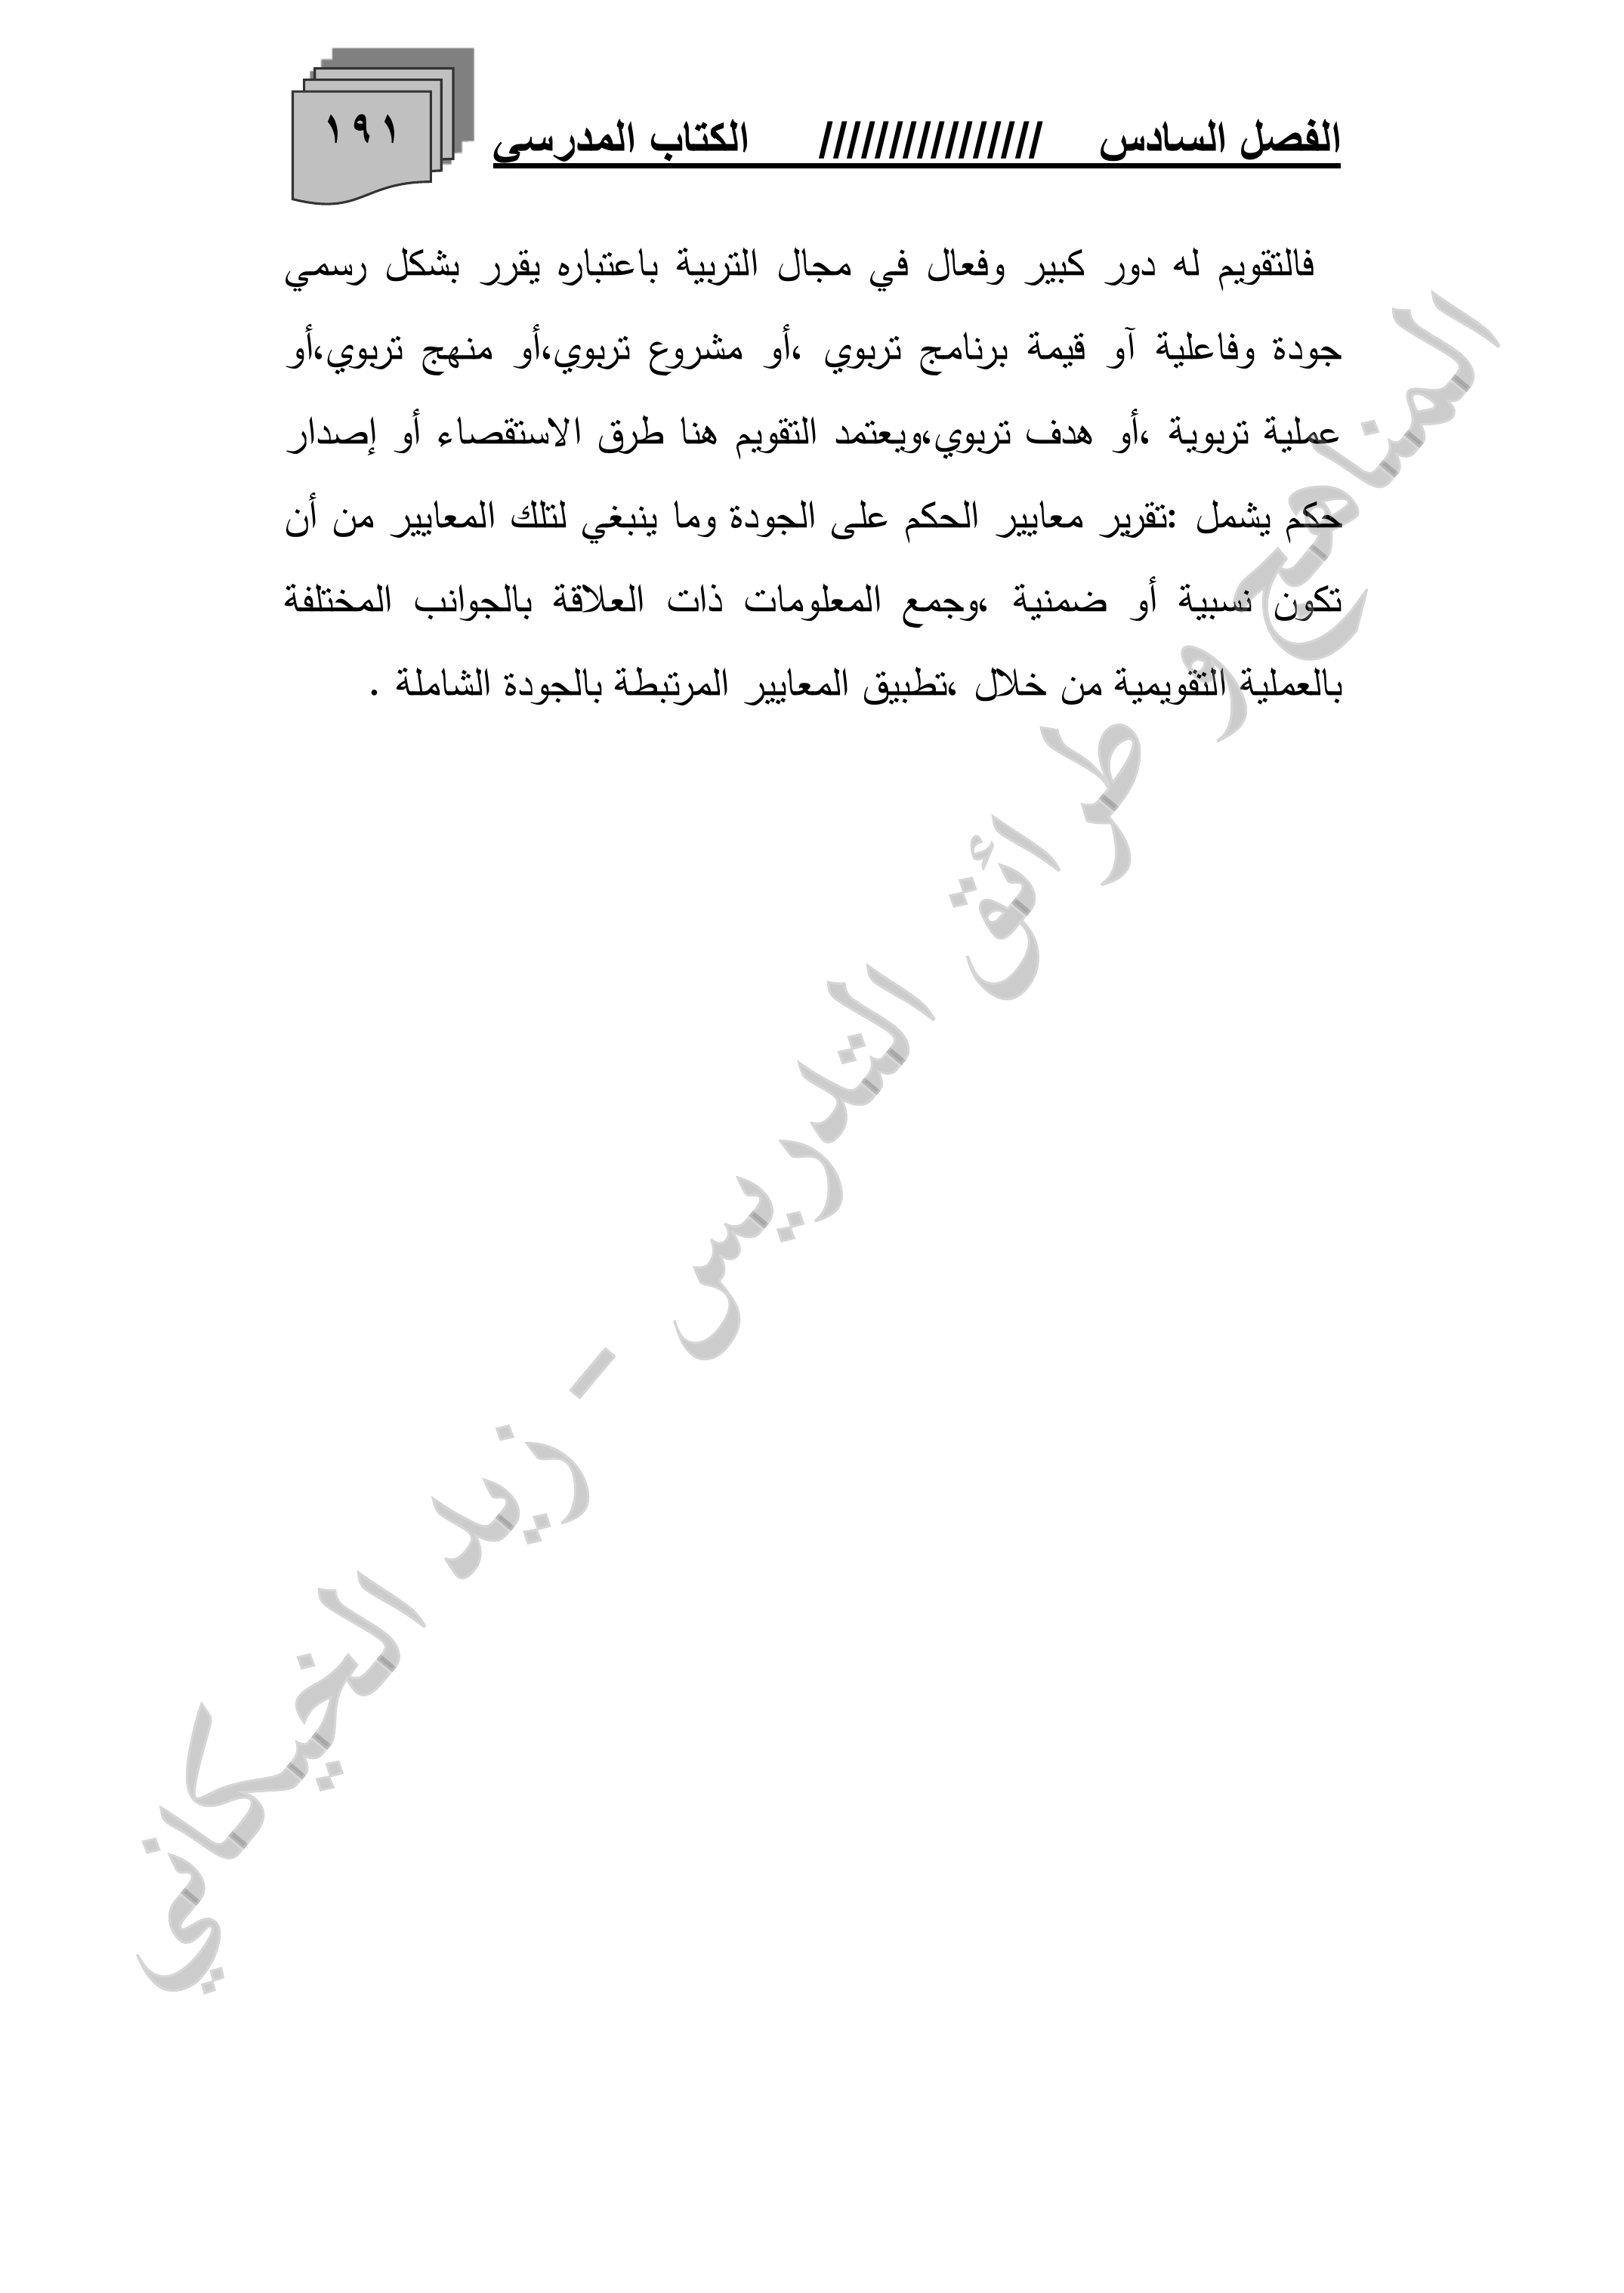 الفصل السادس //////////////// الكتاب المدرسي
١٩١
فالتقويم له دور كبير وفعال في مجال التربية باعتباره يقرر بشكل رسمي
جودة وفاعلية آو قيمة برنامج تربوي ،أو مشروع تربوي،أو منهج تربوي،أو
عملية تربوية ،أو هدف تربوي،ويعتمد التقويم هنا طرق الاستقصاء أو إصدار
حكم يشمل :تقرير معايير الحكم على الجودة وما ينبغي لتلك المعايير من أن
تكون نسبية أو ضمنية ،وجمع المعلومات ذات العلاقة بالجوانب المختلفة
بالعملية التقويمية من خلال ،تطبيق المعايير المرتبطة بالجودة الشاملة .
المناهج و طرائق التدريس - زيد الخيكاني